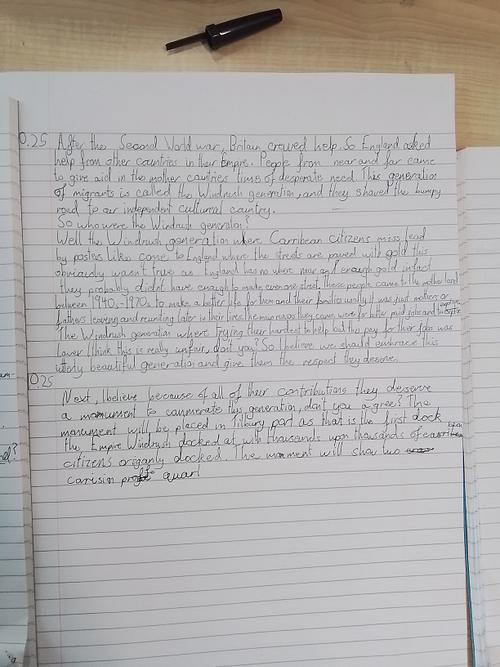 0.25 After the Second World war, Britain craved help. So England asked
help from other countries in their Empire. People from near and far came
to give aid in the mother countries times of desperate need. This generation
of migrants is called the Windrush generation, and they shaved the bumpy
road to our independent cultural country.
So who were the Windrush generation?
Well the Windrush generation where Carribean citizens miss lead
by posters like come to England where the streets are paved with gold this
obviously wasn't true as England has no where near and enough gold infact
they probably didn't have enough to make even one street. these people came to the mother land
between 1940s-1970s to make a better life for them and their families usually it was just mothers or
fathers leaving and reuniting later in their lives the main reason they came were for better paid jobs and to
The Windrush generation where trying their hardest to help but the pay for their jobs was
lower I think this is really unfair, don't you? So I believe we should embrace this
utterly beautiful generation and give them the respect they deserve.
025
Next, I believe because of all of their contributions they deserve
a monument to commerate this generation, don't you agree? The
monument will be placed in Tilbury port as that is the first dock
the Empire Windrush docked at with thousands upon thousands of
citizens organly docked. The monment will show two